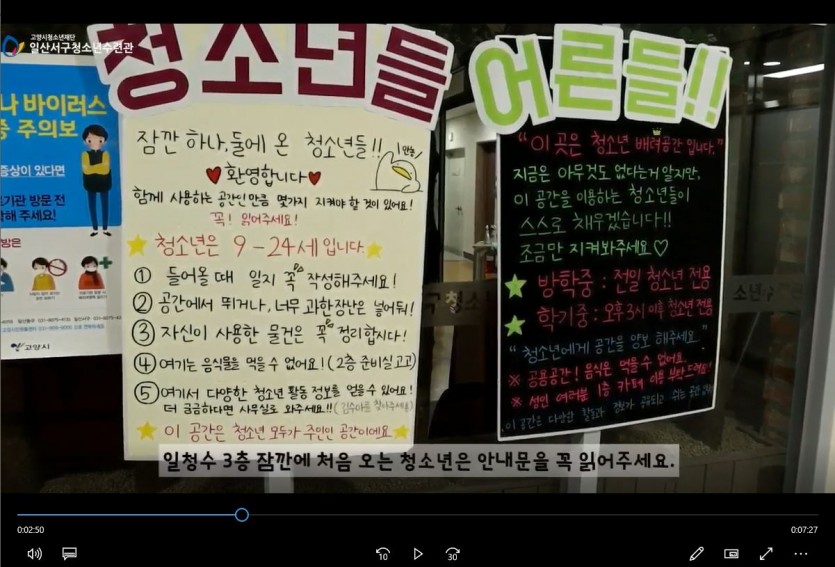 고양시청소년재단
일산서구청소년수련관
나 바이러스
증 주의보
증상이 있다면
기관 방문 전
해 주세요!
방은
고양시
청소년들
잠깐 하나,둘에 온 청소년들!!
안녕
♥환영합니다♥
함께 사용하는 공간인만큼 몇가지 지켜야 할 것이 있어요!
꼭! 읽어주세요!
★청소년은 9-24세 입니다.★
① 들어올 때 일지 꼭 작성해주세요!
② 공간에서 뛰거나, 너무 과한 장난은 넣어둬!
③ 자신이 사용한 물건은 꼭 정리합시다!
④ 여기는 음식물을 먹을 수 없어요! (2층 준비실 고고)
⑤ 여기서 다양한 청소년 활동 정보를 얻을 수 있어요!
더 궁금하다면 사무실로 와주세요!!
★이 공간은 청소년 모두가 주인인 공간이에요★
어른들!!
"이 곳은 청소년 배려공간 입니다."
지금은 아무것도 없다는거 알지만,
이 공간을 이용하는 청소년들이
스스로 채우겠습니다!!
조금만 지켜봐주세요♡
★ 방학중 : 전일 청소년 전용
★ 학기중 : 오후3시 이후 청소년 전용
"청소년에게 공간을 양보 해주세요."
※ 공용공간! 음식은 먹을 수 없어요.
※ 성인 여러분 1층 카페 이용 부탁드려요!
이 공간은 다양한 활동과
구청소
소년수
일청수 3층 잠깐에 처음 오는 청소년은 안내문을 꼭 읽어주세요.
0:02:50
0:07:27
10
30